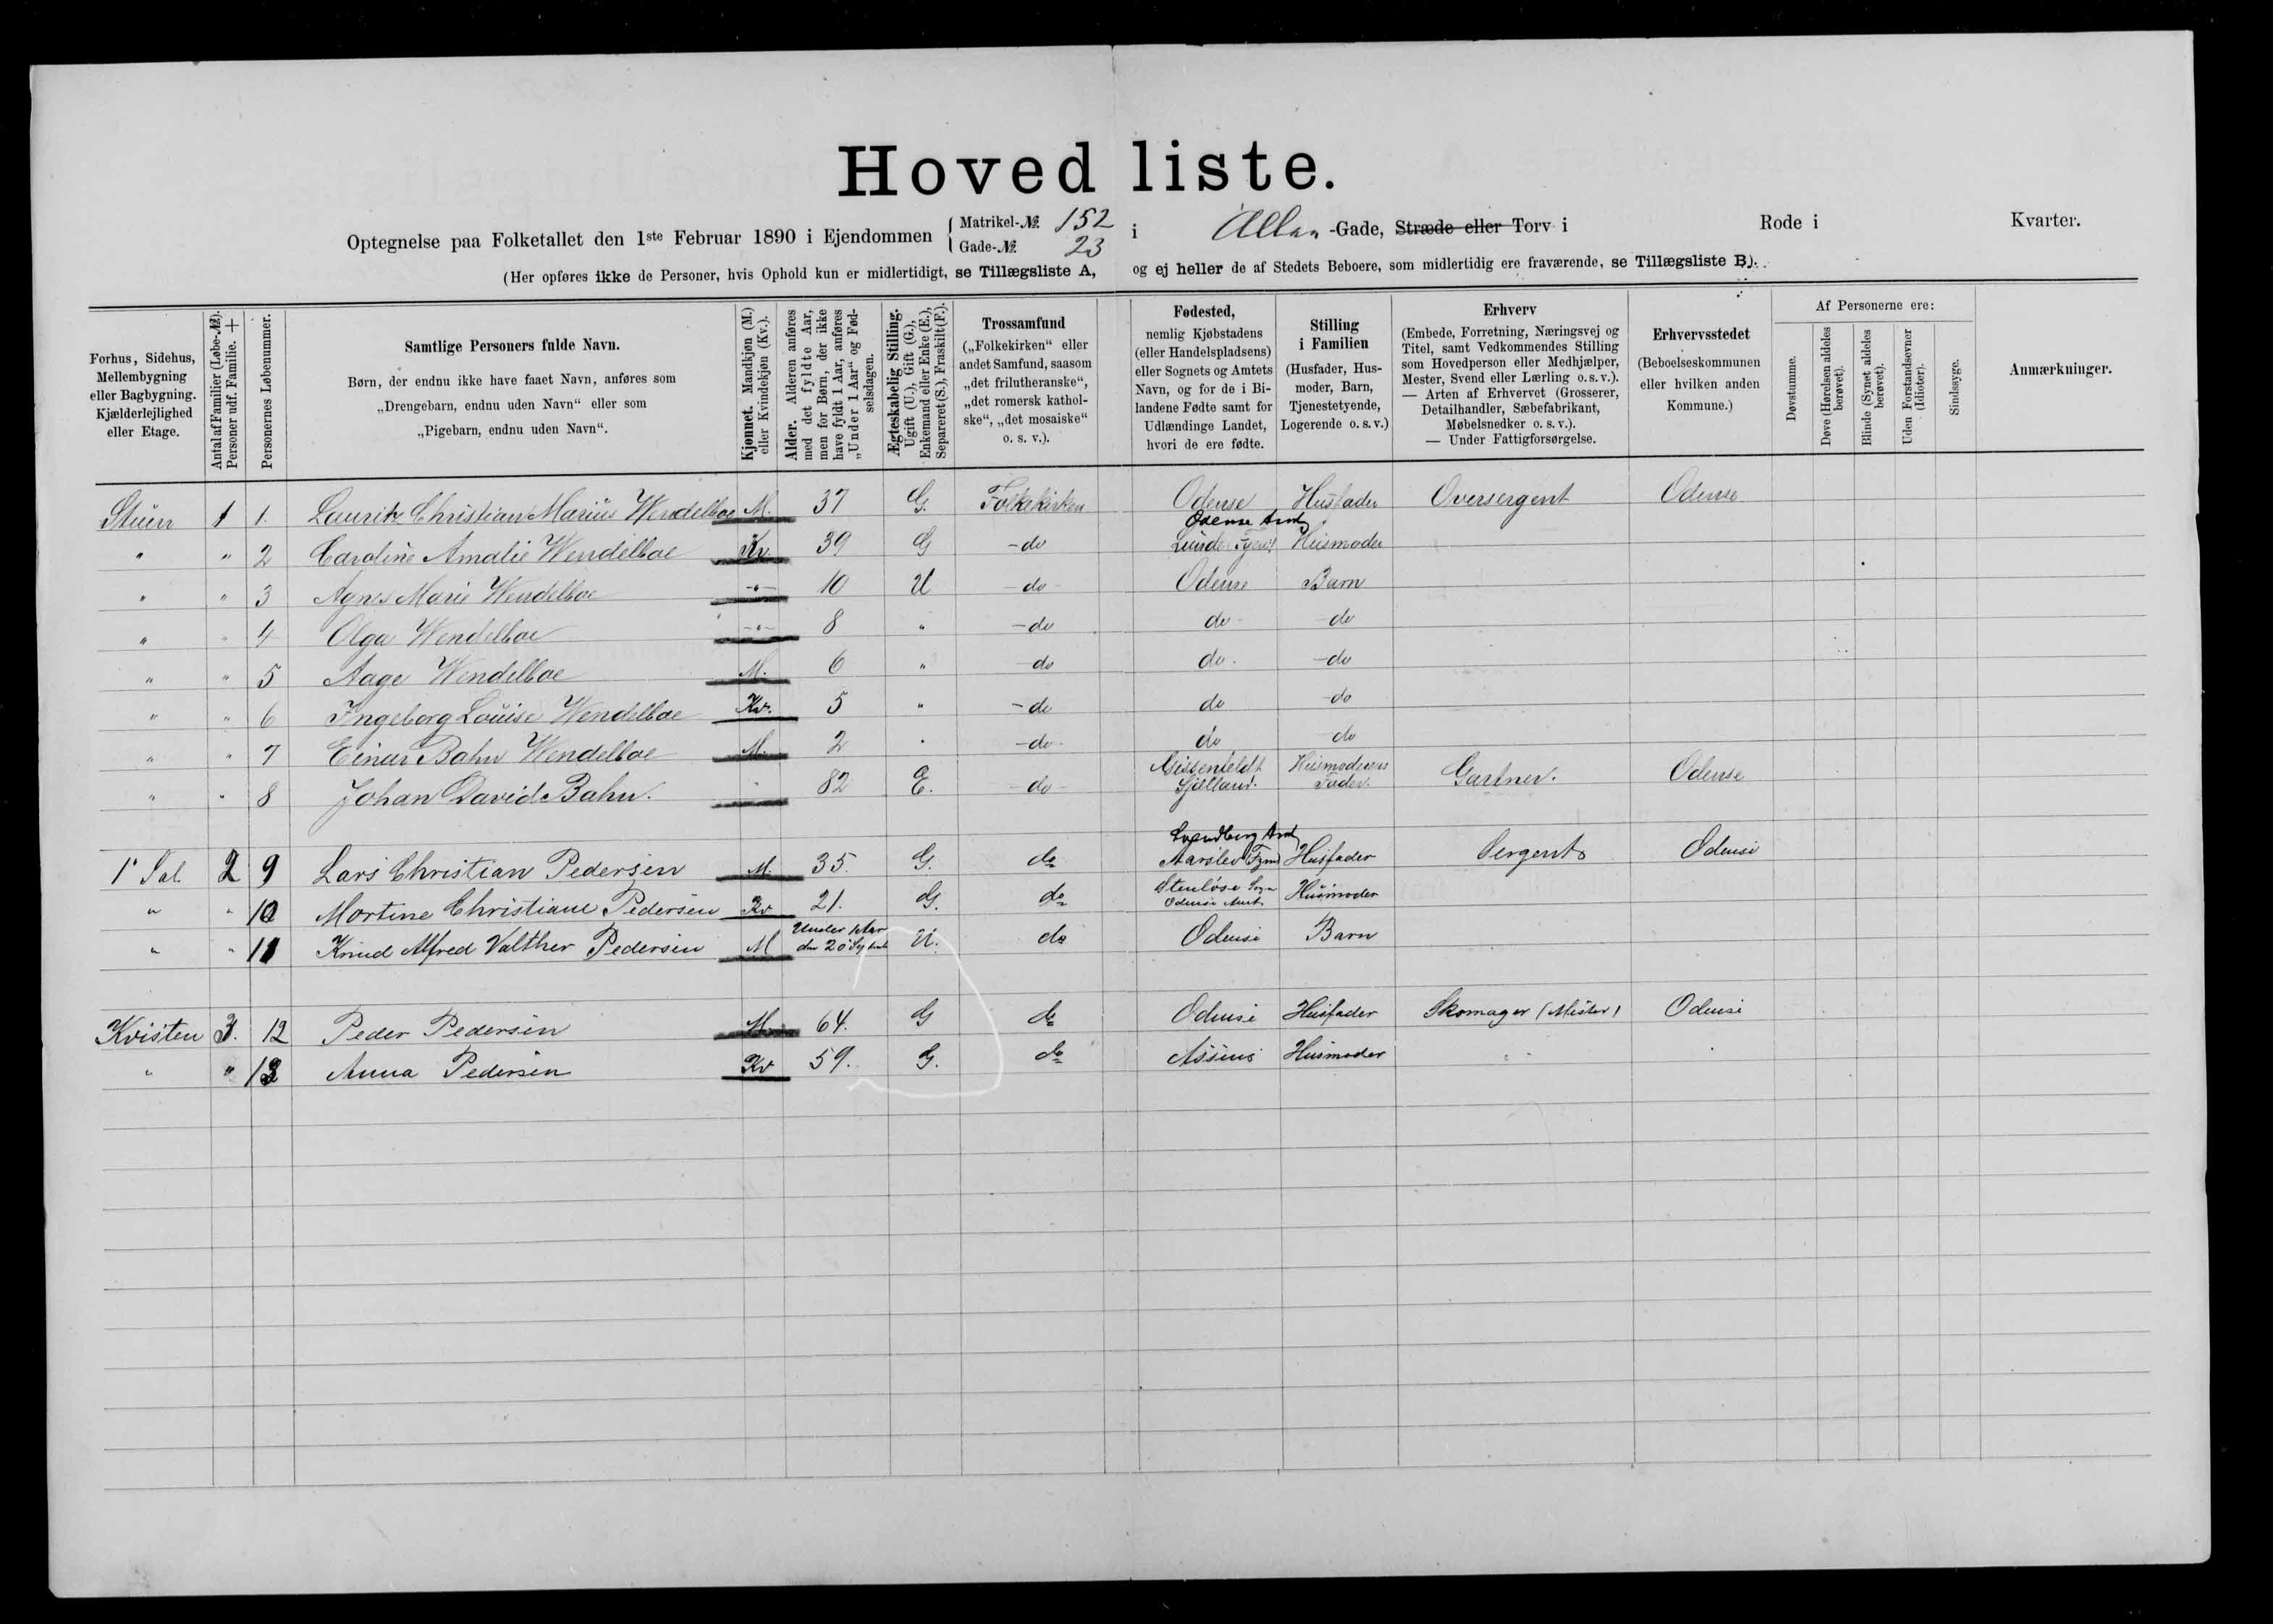 Hovedliste.
Optegnelse paa Folketallet den 1ste Februar 1890 i Ejendommen { Matrikel-№ 152 Gade-№ 23 i Allée-Gade, Stræde eller Torv i Rode i Kvarter.
(Her opføres ikke de Personer, hvis Ophold kun er midlertidigt, se Tillægsliste A, og ej heller de af Stedets Beboere, som midlertidig ere fraværende, se Tillægsliste B).
Forhus, Sidehus, Mellembygning eller Bagbygning. Kjælderlejlighed eller Etage.
Antal af Familier (Løbe-№). Personer udf. Familie. +
Personernes Løbenummer.
Samtlige Personers fulde Navn.
Børn, der endnu ikke have faaet Navn, anføres som „Drengebarn, endnu uden Navn“ eller som „Pigebarn, endnu uden Navn“.
Kjønnet. Mandkjøn (M.) eller Kvindekjøn (Kv.).
Alder. Alderen anføres med det fyldte Aar, men for Børn, der ikke have fyldt 1 Aar, anføres „Under 1 Aar“ og Fødselsdagen.
Ægteskabelig Stilling. Ugift (U.), Gift (G.), Enkemand eller Enke (E.), Separeret (S.), Fraskilt (F.).
Trossamfund („Folkekirken“ eller andet Samfund, saasom „det frilutheranske“, „det romersk katholske“, „det mosaiske“ o. s. v.).
Fødested, nemlig Kjøbstadens (eller Handelspladsens) eller Sognets og Amtets Navn, og for de i Bilandene Fødte samt for Udlændinge Landet, hvori de ere fødte.
Stilling i Familien (Husfader, Husmoder, Barn, Tjenestetyende, Logerende o. s. v.)
Erhverv (Embede, Forretning, Næringsvej og Titel, samt Vedkommendes Stilling som Hovedperson eller Medhjælper, Mester, Svend eller Lærling o. s. v.). — Arten af Erhvervet (Grosserer, Detailhandler, Sæbefabrikant, Møbelsnedker o. s. v.). — Under Fattigforsørgelse.
Erhvervsstedet (Beboelseskommunen eller hvilken anden Kommune.)
Af Personerne ere:
Døvstumme.
Døve (Hørelsen aldeles berøvet).
Blinde (Synet aldeles berøvet).
Uden Forstandsevner (Idioter).
Sindssyge.
Anmærkninger.
Stuen 1 1. Lauritz Christian Marius Wendelboe M. 37 G. Folkekirken Odense Husfader Oversergent Odense
" " 2 Caroline Amalie Wendelboe Kv. 39 G - do Odense Amt Lunde Fyen Husmoder
" " 3 Agnes Marie Wendelboe -"- 10 U - do Odense Barn
" " 4 Olga Wendelboe -"- 8 " - do do - do
" " 5 Aage Wendelboe M. 6 " do do. - do
" " 6 Ingeborg Louise Wendelboe Kv. 5 " - do do - do
" " 7 Einar Bahn Wendelboe M. 2 " - do - do - do
" " 8 Johan David Bahn. " 82 E. - do - Gissenfeldt Sjælland. Husmoderens Fader. Gartner. Odense
1' Sal. 2 9 Lars Christian Pedersen M. 35. G. do Svendborg Amt Aarslev Fyn Husfader Sergent Odense
" " 10 Martine Christiane Pedersen Kv 21. G. do Stenløse Sogn Odense Amt. Husmoder
" " 11 Knud Alfred Valther Pedersen M Under 1 Aar den 20' U. do Odense Barn
Kvisten 3. 12 Peder Pedersen M. 64. G do Odense Husfader Skomager (Mester) Odense
" " 13 Anna Pedersen Kv 59. G. do Assens Husmoder " "